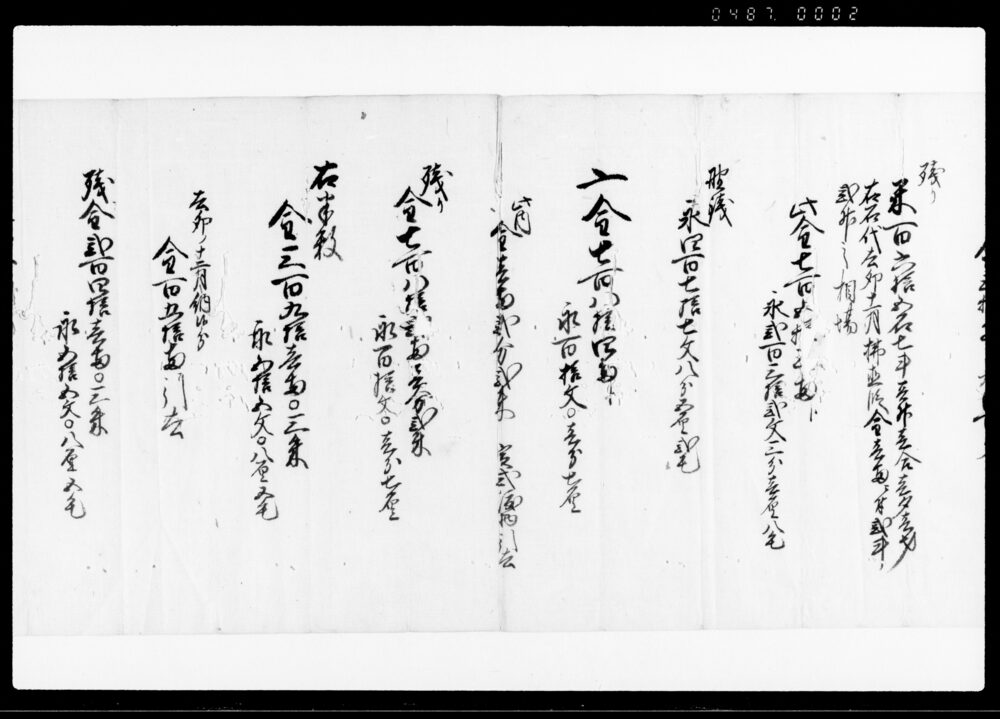 0487. 0002
残り
米百六拾五石七斗壱升壱合壱夕壱才
右石代去卯十一月払直段金壱両ニ付弐斗
弐升之相場
此金七百五拾三両ト
永弐百三拾弐文三分壱厘八毛
永四百七拾七文八分 弐毛
〆金七百八拾四両ト
永百拾文〇壱分七厘
此内
金壱両弐分弐朱 引去
残り
金七百八拾弐両壱分弐朱
永百拾文〇壱分七厘
右半数
金三百九拾壱両〇三朱
永五拾五文〇八厘五毛
去卯ノ十二月納候分
金百五拾両 引去
残金弐百四拾壱両〇三朱
永五拾五文〇八厘五毛